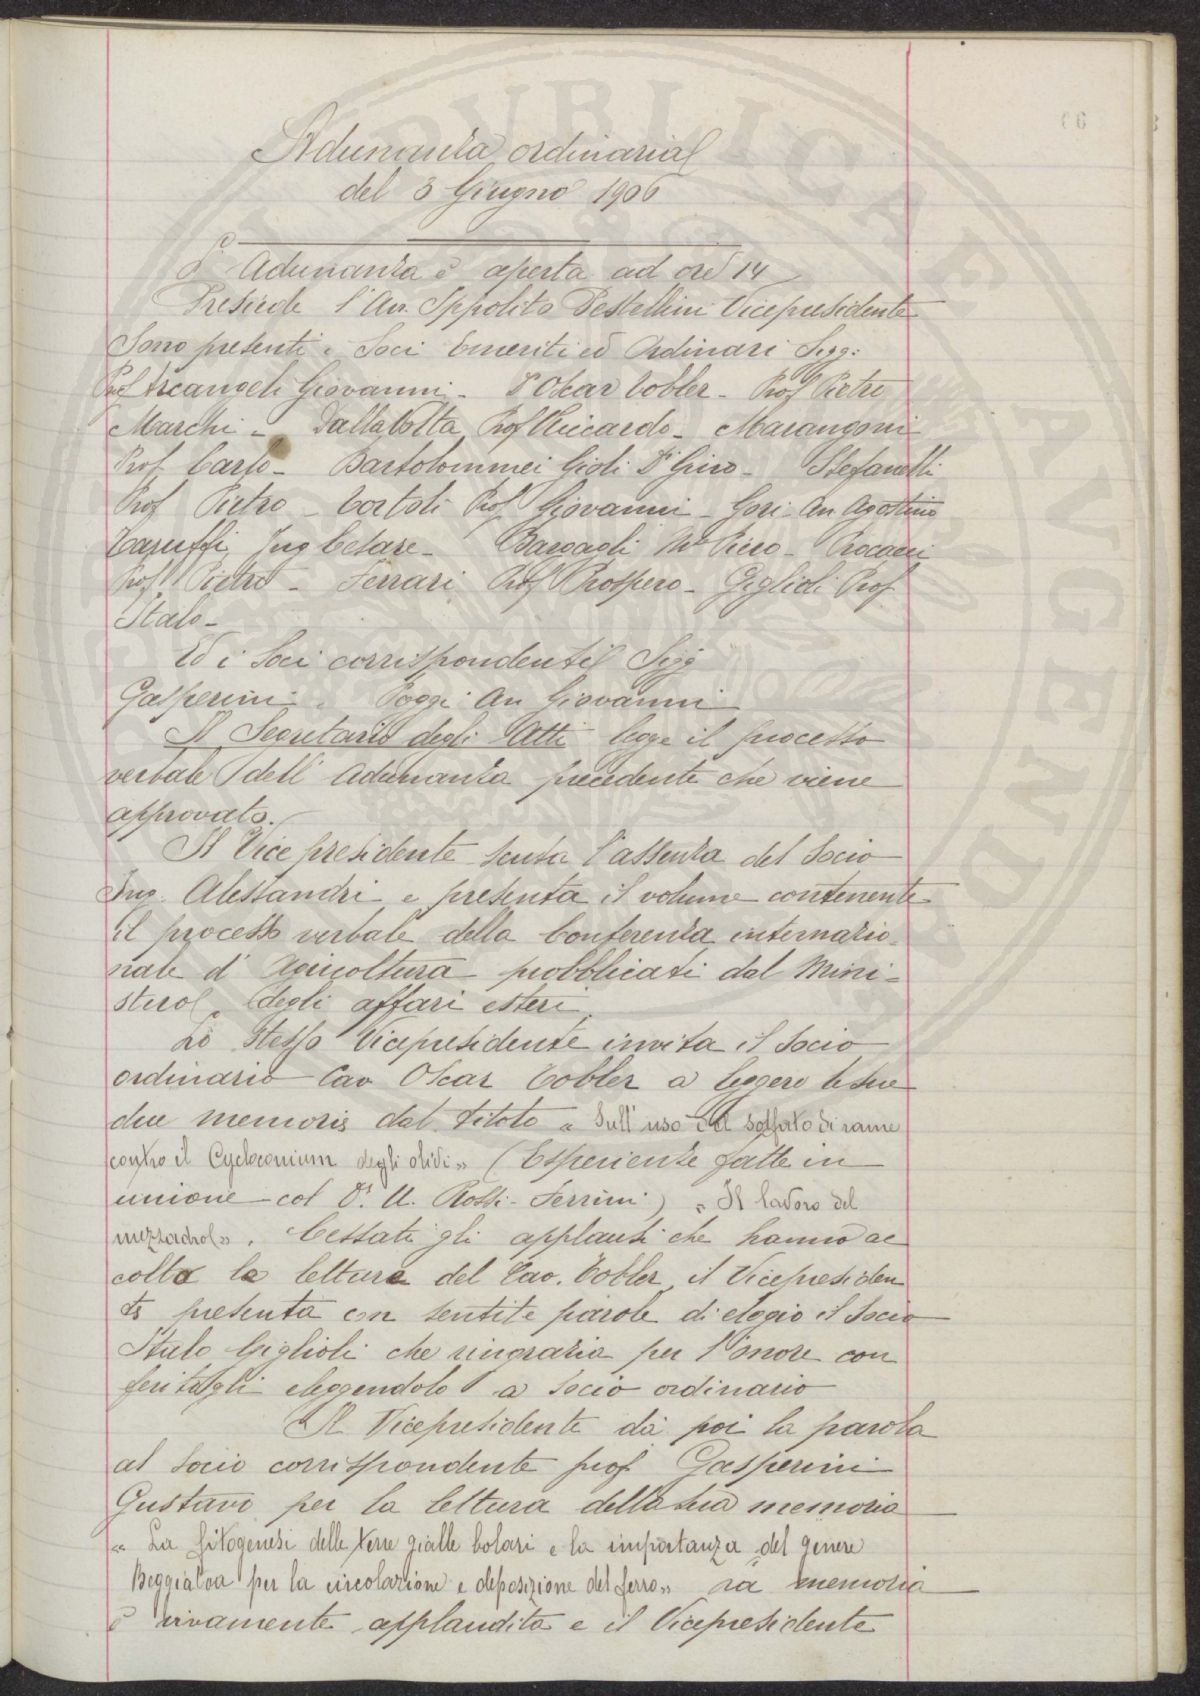 Adunanza ordinaria
del 3 Giugno 1906
L'Adunanza è aperta ad ore 14
Presiede l'Avv. Ippolito Pestellini Vicepresidente
Sono presenti i Soci Emeriti ed Ordinari Sigg:
Prof Arcangeli Giovanni - Dr Oscar Tobler - Prof Pietro
Marchi - Dalla Volta Prof Riccardo - Marangoni
Prof. Carlo - Bartolommei Gioli Dr Gino - Stefanelli
Prof Pietro - Bertoli Prof Giovanni - Gori Avv Agostino
Taruffi Ing Cesare - Bargagli Mse Piero - Procacci
Prof Pietro - Ferrari Prof Prospero - Giglioli Prof
Italo -
Ed i Soci corrispondenti Sigg
Gasperini, Poggi Avv Giovanni
Il Segretario degli Atti legge il processo
verbale dell'adunanza precedente che viene
approvato.
Il Vice presidente scusa l'assenza del Socio
Ing. Alessandri e presenta il volume contenente
il processo verbale della Conferenza internazio-
nale d'Agricoltura pubblicati dal Mini-
stero degli affari esteri.
Lo stesso Vicepresidente invita il Socio
ordinario Cav Oscar Tobler a leggere le sue
due memorie dal titolo « Sull'uso del solfato di rame
contro il Cycloconium degli olivi» (Esperienze fatte in
unione col Dr. U. Rossi-Ferrini) « Il lavoro del
mezzadro». Cessati gli applausi che hanno ac
colto le letture del Cav. Tobler, il Vicepresiden
te presenta con sentite parole di elogio il Socio
Italo Giglioli che ringrazia per l'onore con
feritogli eleggendolo a Socio ordinario
Il Vicepresidente dà poi la parola
al Socio corrispondente prof Gasperini
Gustavo per la lettura della sua memoria
« La fitogenesi delle terre gialle bolari e la importanza del genere
Beggiatoa per la circolazione e deposizione del ferro» La memoria
è vivamente applaudita e il Vicepresidente